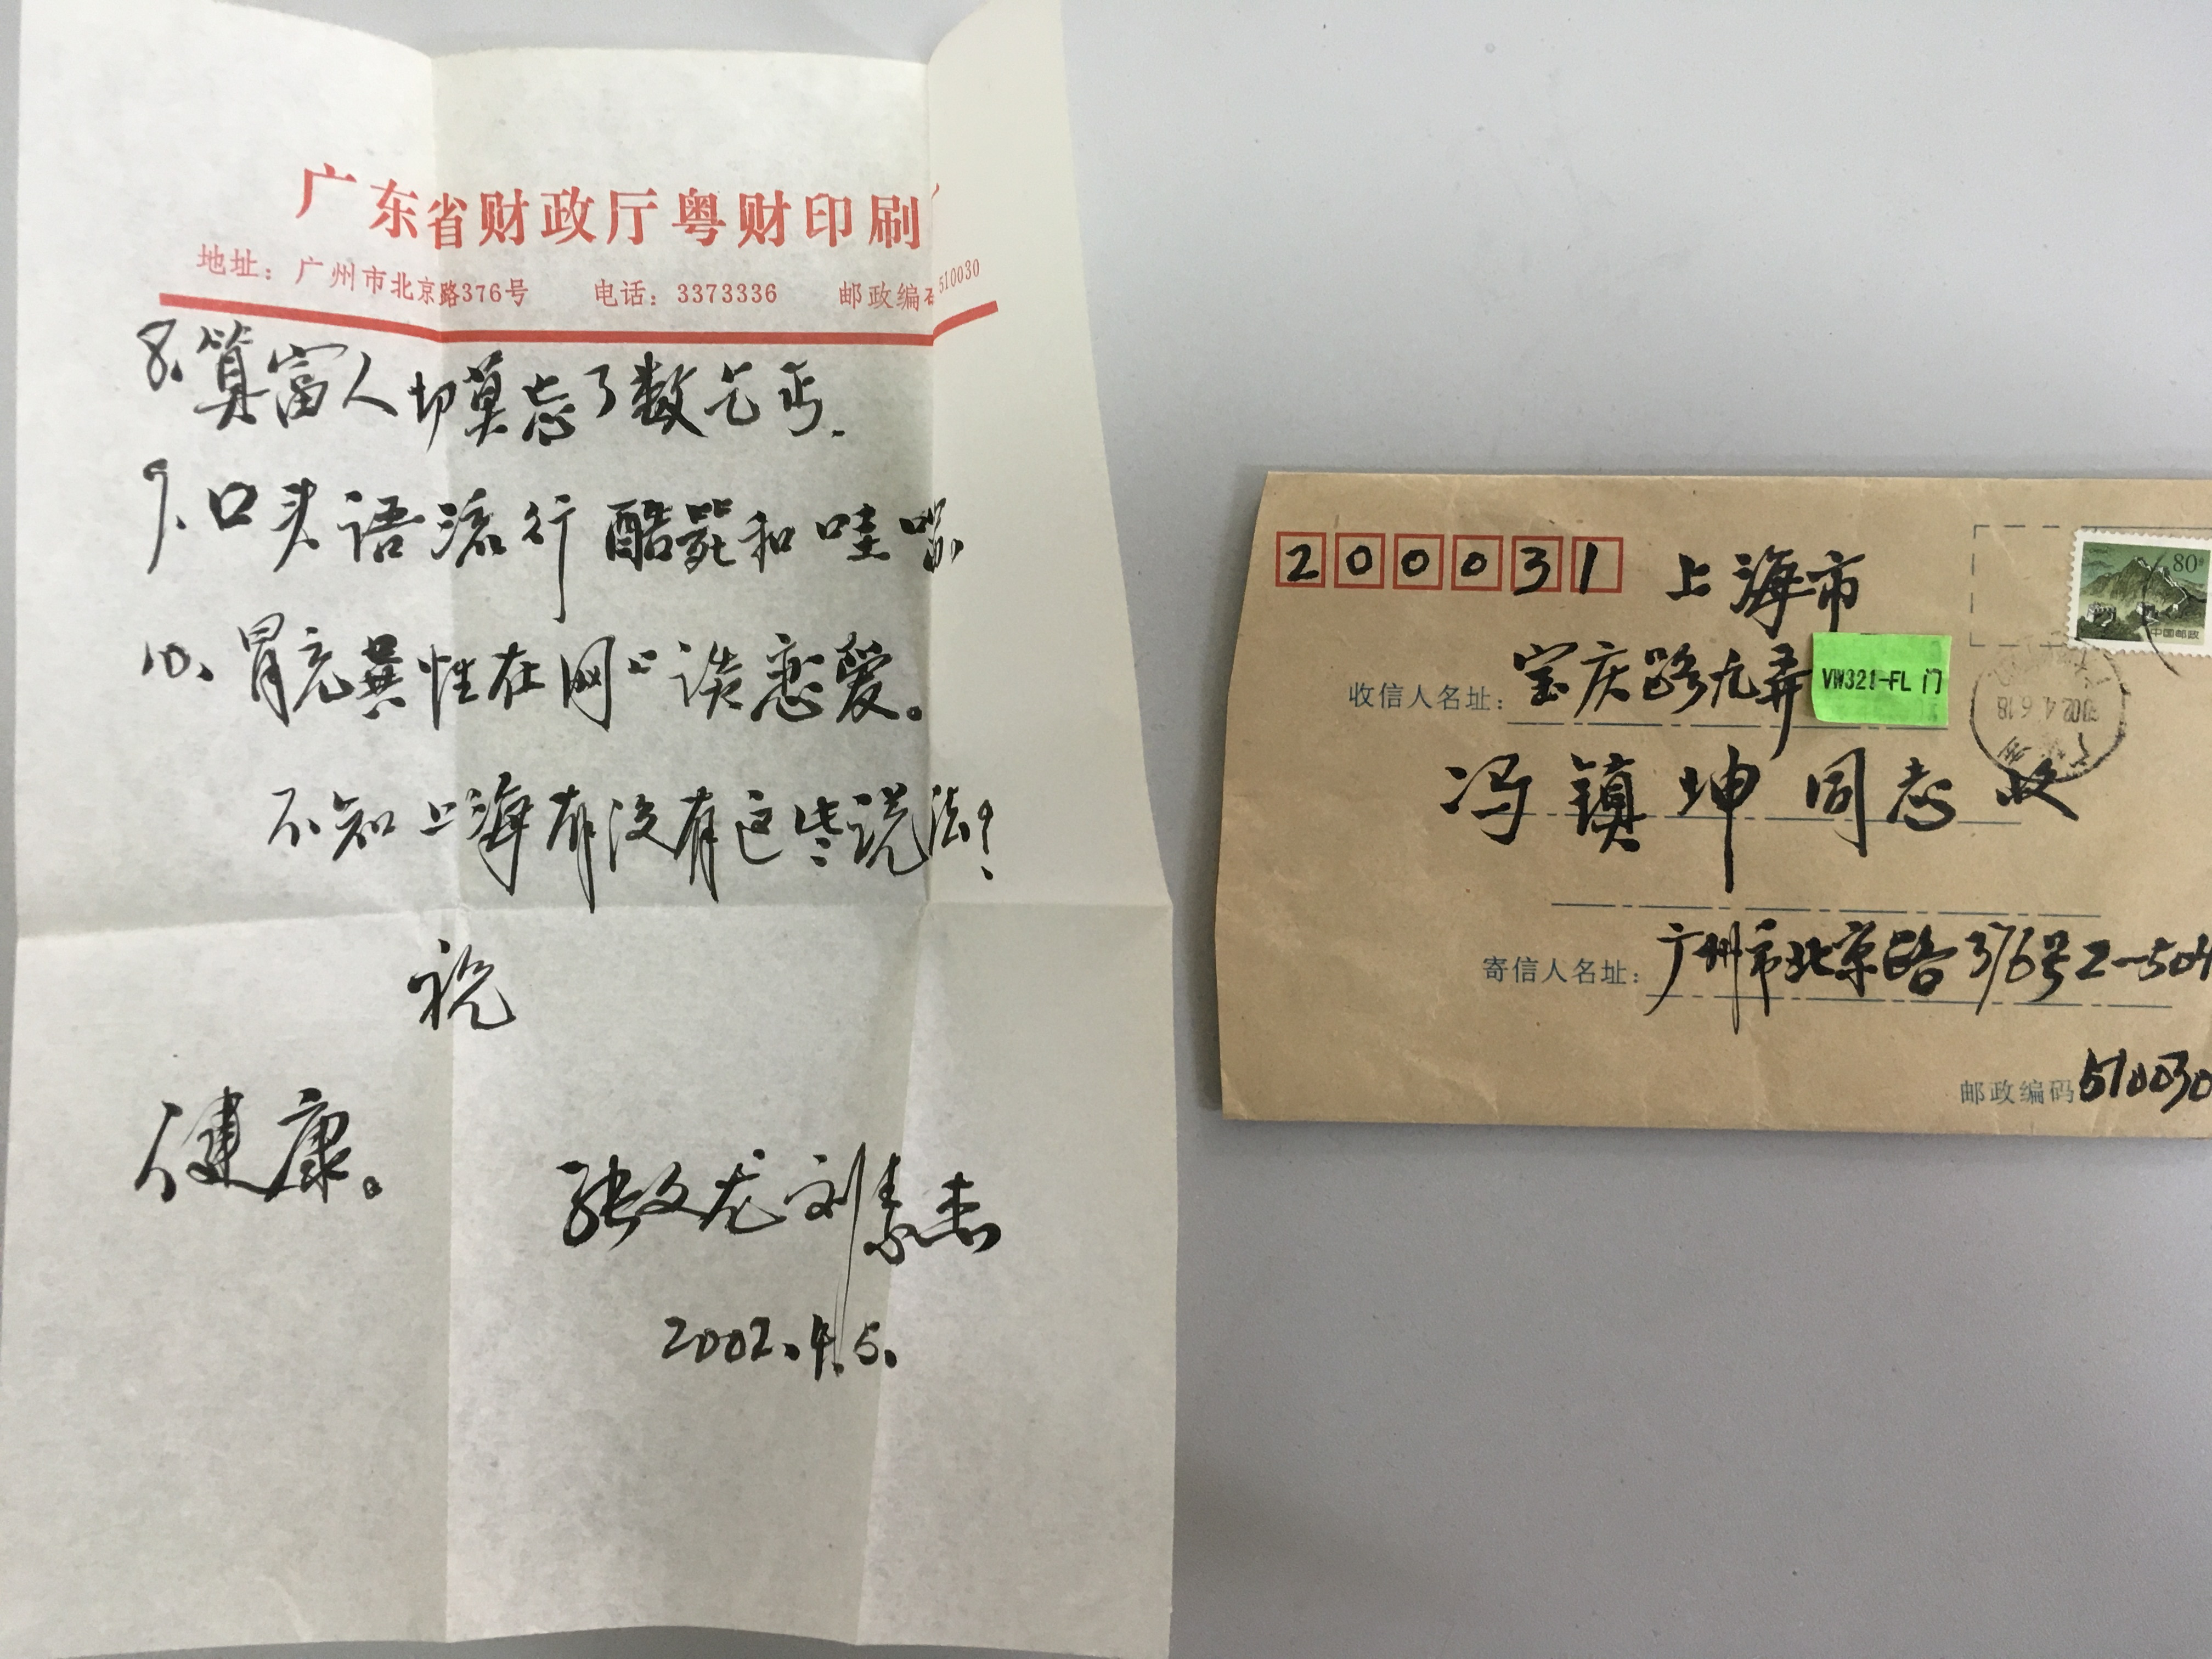 广东省财政厅粤财印刷
地址：广州市北京路376号 电话：3373336 邮政编 510030
8、算富人切莫忘了数乞丐.
9、口头语流行酷毙和哇噻.
10、冒充異性在网上谈恋爱。
不知上海有没有这些说法？
祝
健康。
张文龙 刘素杰
2002.4.5.
200031 上海市
收信人名址：宝庆路九弄
VW321-FL 门
冯镇坤同志收
寄信人名址：广州市北京路376号2-504
邮政编码 510030
80
中国邮政
2002.4.6.18